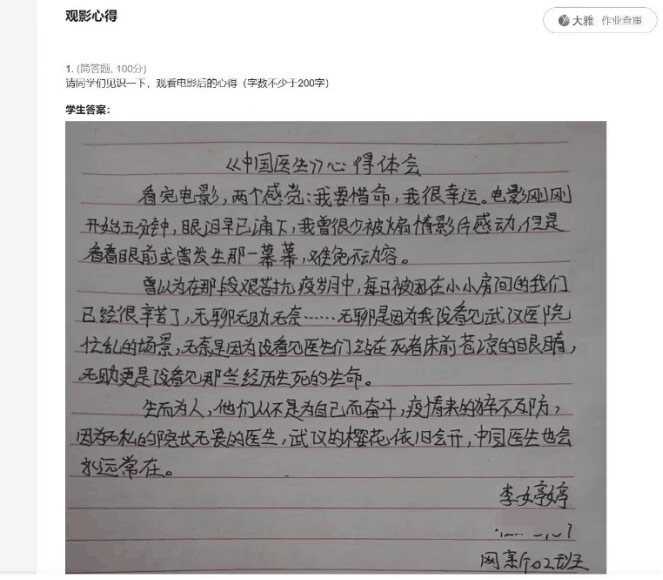 观影心得
大雅 作业查重
1. (简答题, 100分)
请同学们见识一下，观看电影后的心得（字数不少于200字）
学生答案：
《中国医生》心得体会
看完电影，两个感觉：我要惜命，我很幸运。电影刚刚
开始五分钟，眼泪早已涌下，我曾很少被煽情影片感动，但是
看着眼前或曾发生那一幕幕，难免不动容。
曾以为在那段艰苦抗疫岁月中，每日被困在小小房间的我们
已经很辛苦了，无聊无助无奈……无聊是因为我没看见武汉医院
忙乱的场景，无奈是因为没看见医生们站在死者床前苍凉的眼睛，
无助更是没看见那些经历生死的生命。
生而为人，他们从不是为自己而奋斗，疫情来的猝不及防，
因为无私的院长无畏的医生，武汉的樱花依旧会开，中国医生也会
永远常在。
李婷婷
网新02班